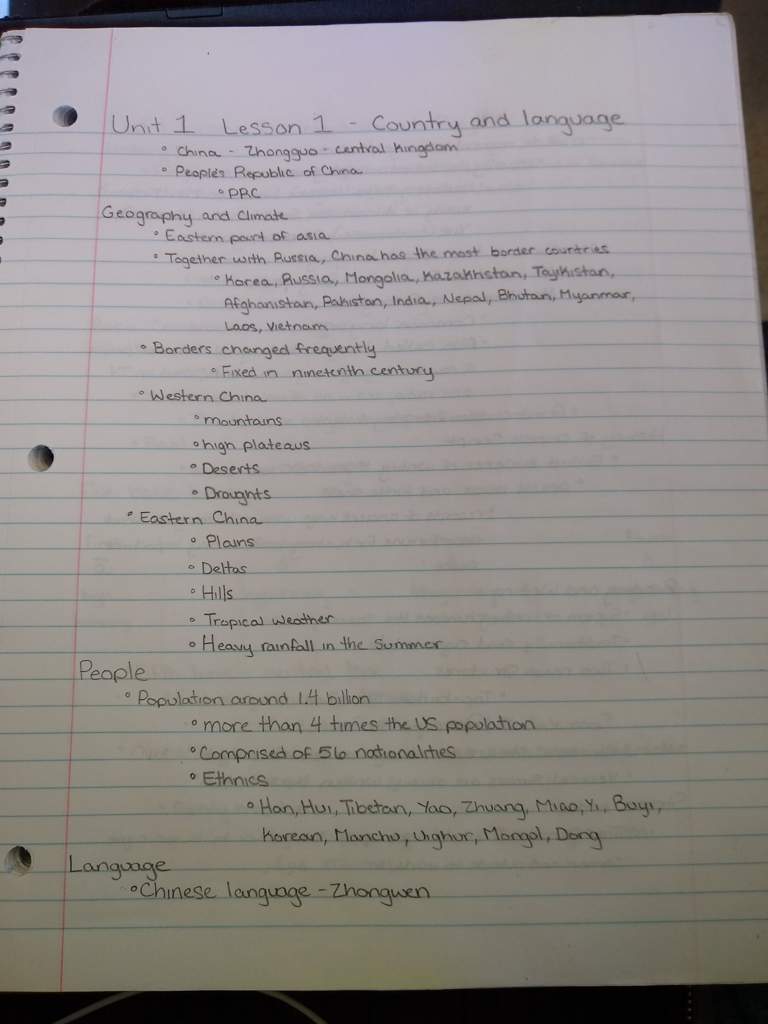 Unit 1 Lesson 1 - Country and language
° China - Zhongguo - central kingdom
° People's Republic of China
° PRC
Geography and Climate
° Eastern part of asia
° Together with Russia, China has the most border countries
° Korea, Russia, Mongolia, Kazakhstan, Tajikistan,
Afghanistan, Pakistan, India, Nepal, Bhutan, Myanmar,
Laos, Vietnam
° Borders changed frequently
° Fixed in nineteenth century
° Western China
° mountains
° high plateaus
° Deserts
° Droughts
° Eastern China
° Plains
° Deltas
° Hills
° Tropical weather
° Heavy rainfall in the summer
People
° Population around 1.4 billion
° more than 4 times the US population
° Comprised of 56 nationalities
° Ethnics
° Han, Hui, Tibetan, Yao, Zhuang, Miao, Yi, Buyi,
Korean, Manchu, Uighur, Mongol, Dong
Language
° Chinese language - Zhongwen